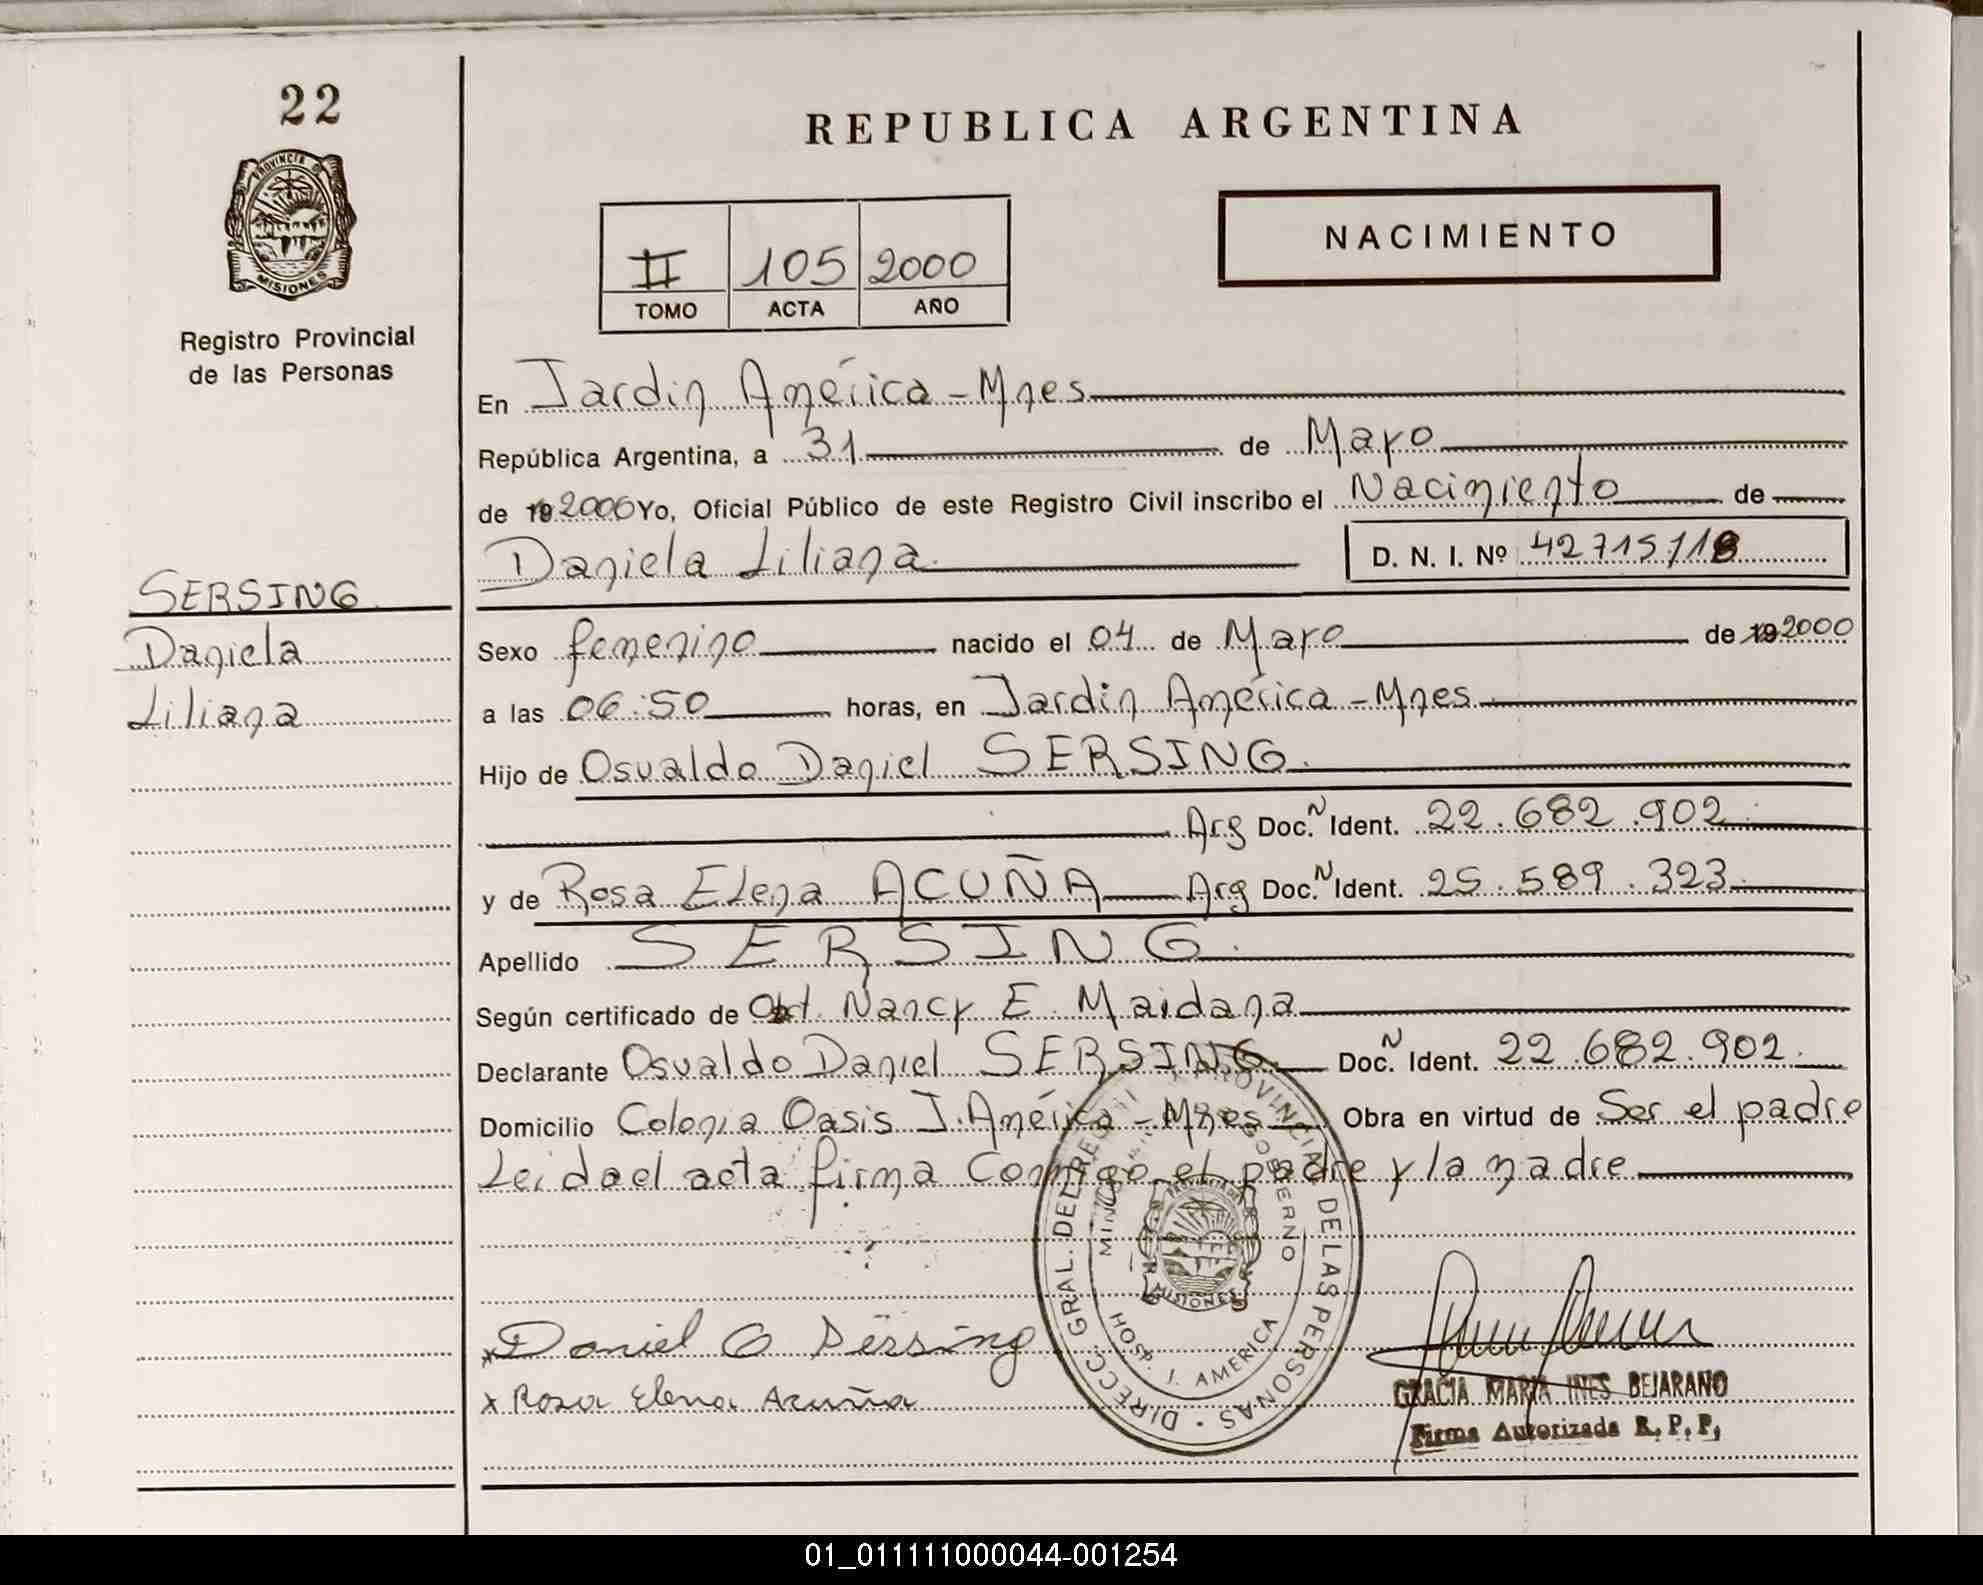 22
REPUBLICA ARGENTINA
PROVINCIA D
MISIONES
Registro Provincial
de las Personas
II 105 2000
TOMO ACTA AÑO
NACIMIENTO
En Jardin América - Mnes
República Argentina, a 31 de Mayo
de 19 2000 Yo, Oficial Público de este Registro Civil inscribo el Nacimiento de
Daniela Liliana D. N. I. Nº 42715118
SERSING
Daniela
Liliana
Sexo femenino nacido el 04 de Mayo de 19 2000
a las 06:50 horas, en Jardin América - Mnes.
Hijo de Osvaldo Daniel SERSING.
Arg Doc. N Ident. 22.682.902.
y de Rosa Elena ACUÑA Arg Doc. N Ident. 25.589.323
Apellido SERSING.
Según certificado de Obst. Nancy E. Maidana
Declarante Osvaldo Daniel SERSING Doc. N Ident. 22.682.902.
Domicilio Colonia Oasis J. América - Mnes Obra en virtud de Ser el padre
Leida el acta firma Conmigo el padre y la madre
DIRECC. GRAL. DEL REG. PROVINCIAL DE LAS PERSONAS
GOBIERNO
MISIONES
HOSP. J. AMERICA
x Daniel O Sersing
x Rosa Elena Acuña
GRACIA MARIA INES BEJARANO
Firma Autorizada R. P. P.
01_011111000044-001254